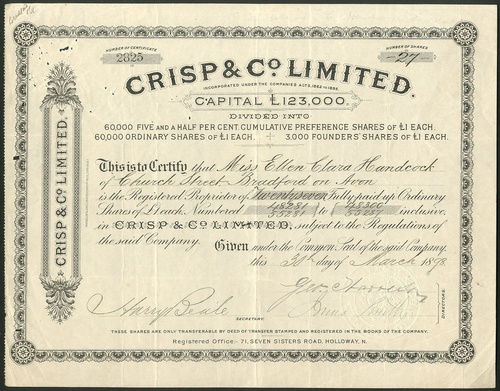 NUMBER OF CERTIFICATE
2625
NUMBER OF SHARES
-27-
CRISP & Co. LIMITED.
INCORPORATED UNDER THE COMPANIES ACTS, 1862 TO 1893.
CAPITAL £123,000.
DIVIDED INTO
60,000 FIVE AND A HALF PER CENT. CUMULATIVE PREFERENCE SHARES OF £1 EACH.
60,000 ORDINARY SHARES OF £1 EACH. 3,000 FOUNDERS' SHARES OF £1 EACH.
CRISP & Co. LIMITED.
This is to Certify that Miss Ellen Clara Handcock
of Church Street Bradford on Avon
is the Registered Proprietor of Twentyseven fully paid up Ordinary
Shares of £1 each, Numbered to inclusive,
in CRISP & Co. LIMITED, subject to the Regulations of
the said Company.
Given under the Common Seal of the said Company,
this 30th day of March 1898
Harry Beale
SECRETARY.
DIRECTORS.
THESE SHARES ARE ONLY TRANSFERABLE BY DEED OF TRANSFER STAMPED AND REGISTERED IN THE BOOKS OF THE COMPANY.
Registered Office:- 71, SEVEN SISTERS ROAD, HOLLOWAY, N.